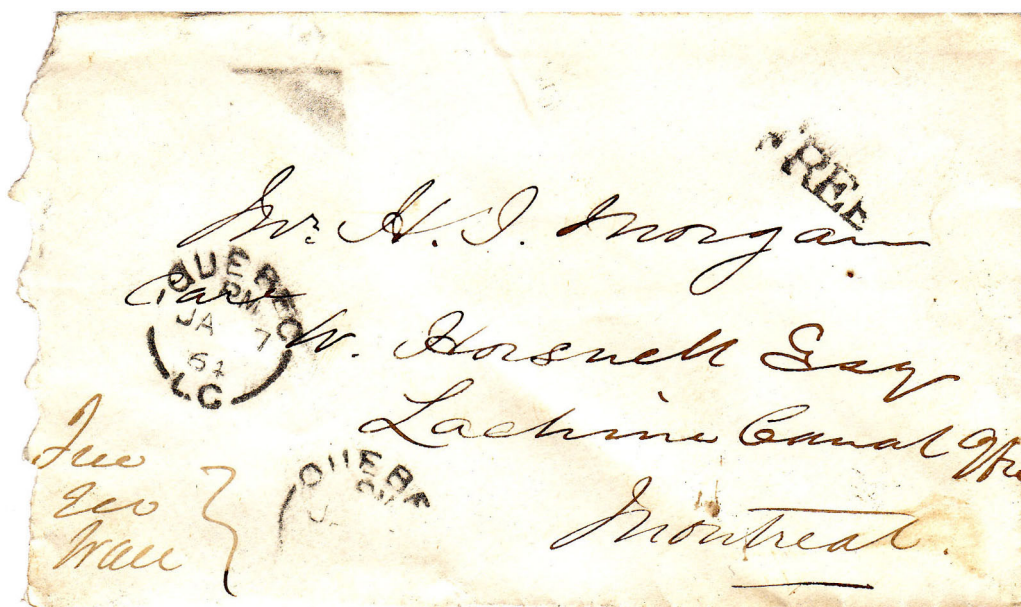 FREE
Mr. H. J. Morgan
Care
W. Horsnell Esq
Lachine Canal
Montreal.
QUEBEC
PM
JA 7
64
L.C
QUEBE
Free